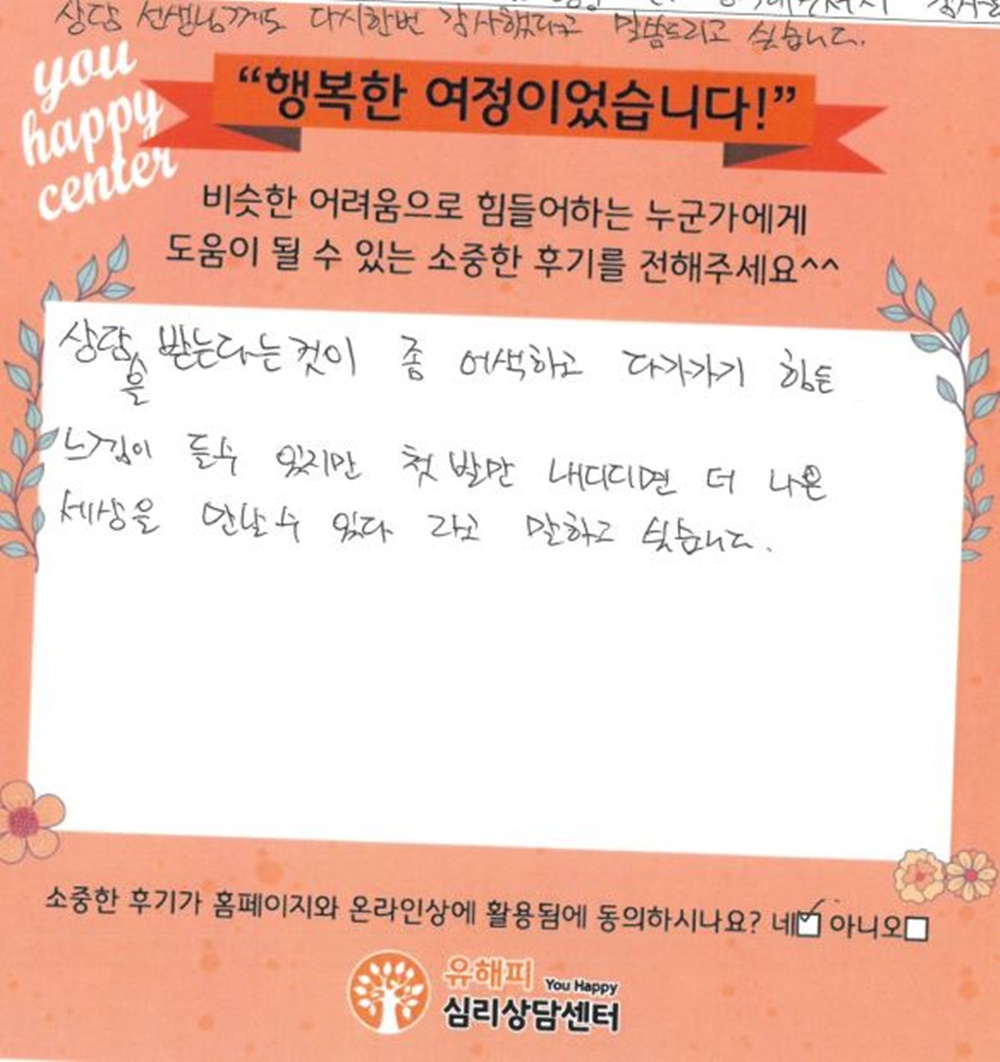 상담 선생님께도 다시한번 감사했다고 말씀드리고 싶습니다.
you
happy
center
“행복한 여정이었습니다!”
비슷한 어려움으로 힘들어하는 누군가에게
도움이 될 수 있는 소중한 후기를 전해주세요^^
상담을 받는다는것이 좀 어색하고 다가가기 힘든
느낌이 들수 있지만 첫 발만 내디디면 더 나은
세상을 만날 수 있다 라고 말하고 싶습니다.
소중한 후기가 홈페이지와 온라인상에 활용됨에 동의하시나요? 네☑ 아니오☐
유해피 You Happy
심리상담센터